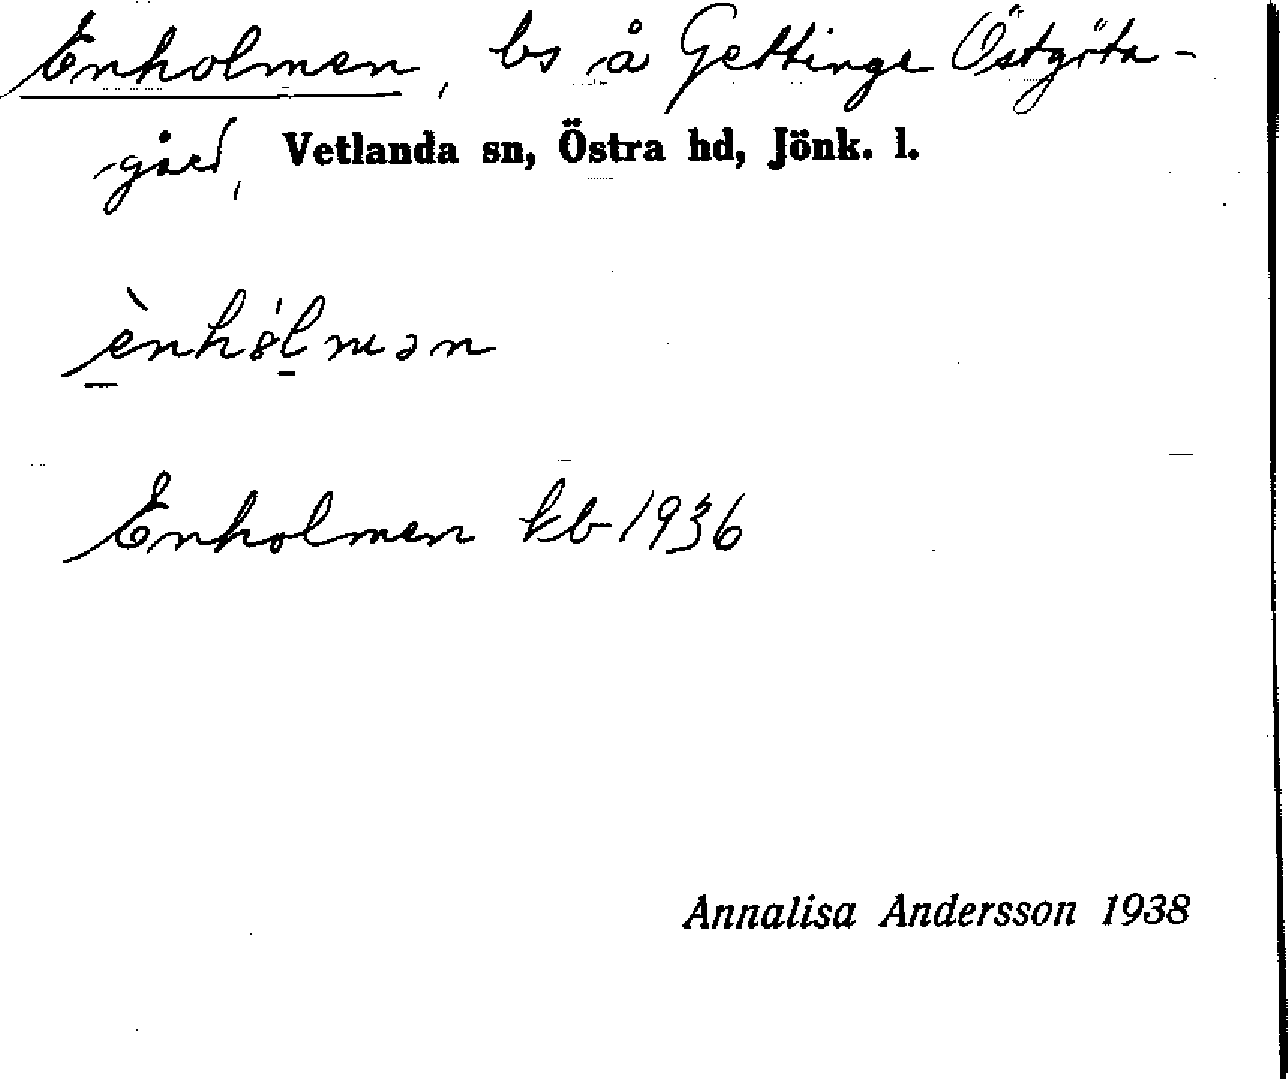 Enholmen, bs å Gettinge Östgöta-
gård, Vetlanda sn, Östra hd, Jönk. l.
ènhólmən
Enholmen kb 1936
Annalisa Andersson 1938